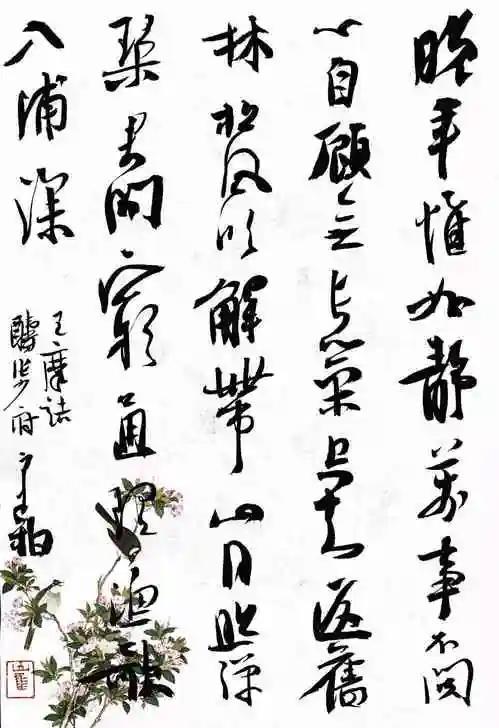 晚年惟好静萬事不関
心自顧無長策空知返舊
林松風吹解帶山月照彈
琴君問窮通理漁歌
入浦深
王摩诘
酬张少府